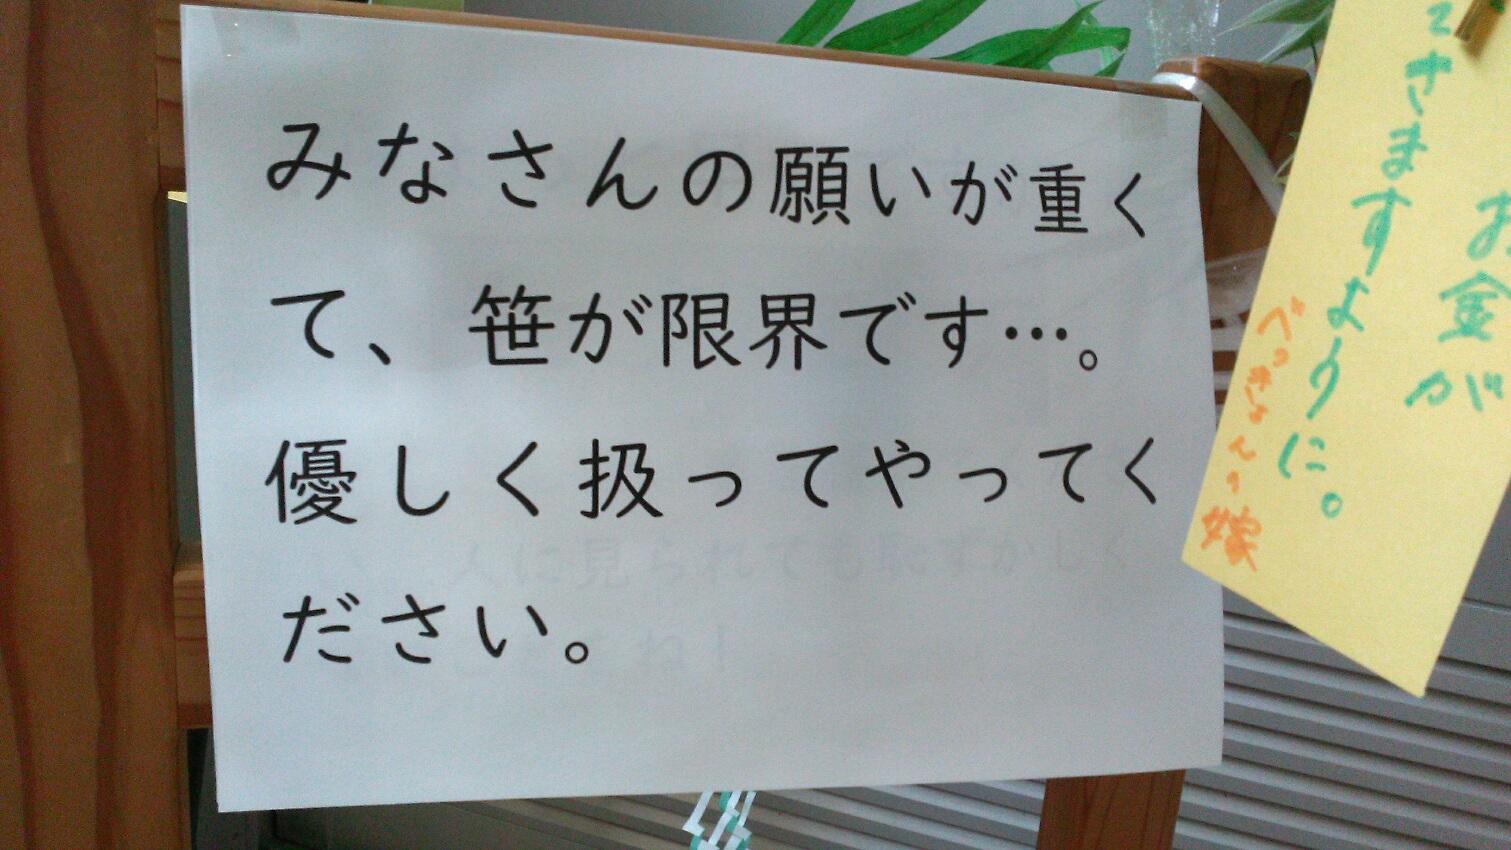 みなさんの願いが重く
て、笹が限界です…。
優しく扱ってやってく
ださい。
人に見られても恥ずかしく
ね！
お金が
できますように。
べっきょんの嫁